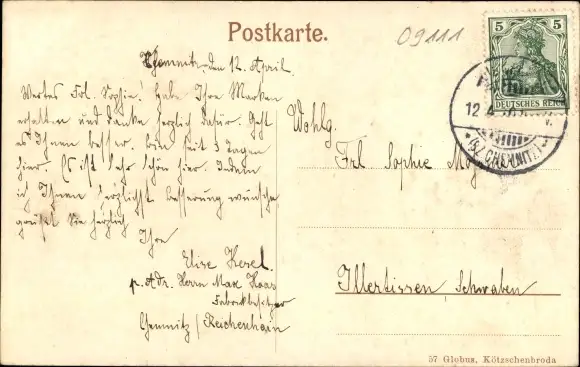 Postkarte.
09111
5 5
DEUTSCHES REICH
12.4.
(BZ. CHEMNITZ)
Chemnitz, den 12. April.
Wertes Frl. Sophie! Habe Ihre Marken
erhalten und danke herzlich dafür. Geht
es Ihnen besser. Bin seit 3 Tagen
hier. Es ist sehr schön hier. Indem
ich Ihnen herzlichst Besserung wünsche
grüßt Sie herzlich
Ihre
Elise Kesel.
p. Adr. Herrn Max Haas
Fabrikbesitzer
Chemnitz / Reichenhain
Wohlg.
Frl Sophie
Illertissen, Schwaben
57 Globus, Kötzschenbroda